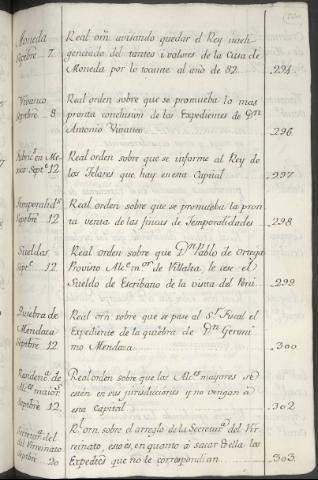 Moneda
Septbre 7.
Real orn̄ avisando quedar el Rey inteli-
genciado del tanteo i valores de la Casa de
Moneda por lo tocante al año de 82.
294.
Vivanco
Septbre 8
Real orden sobre que se promueba la mas
pronta conclusion de los Expedientes de Dn.
Antonio Vivanco
296
en Me-
xico Septe. 12
Real orden sobre que se informe al Rey de
los Telares que hay en esta Capital
297
Temporalids.
Septbre 12
Real orden sobre que se promueba la pron
ta venta de las fincas de Temporalidades
298
Sueldos
Sepe. 12
Real orden sobre que Dn. Pablo de Ortega
Provisto Alce. mor. de Villalta, le cese el
Sueldo de Escribano de la visita del Perú
299
Quiebra de
Mendoza
Septbre 12
Real orn̄ sobre que se pase al Sr. Fiscal el
Expediente de la quiebra de Dn. Geroni
mo Mendoza
300
Residenca. de
Alces. maiors.
Septbre 12
Real orden sobre que los Alces. mayores se
estén en sus jurisdicciones y no vengan á
esta Capital
302
Secretaa. del
Virreinato
Septbre 20
Rl. orn. sobre el arreglo de la Secretaa. del Vir
reinato, esto és, en quanto á sacar de ella los
Expedtes que no le correspondian
303.